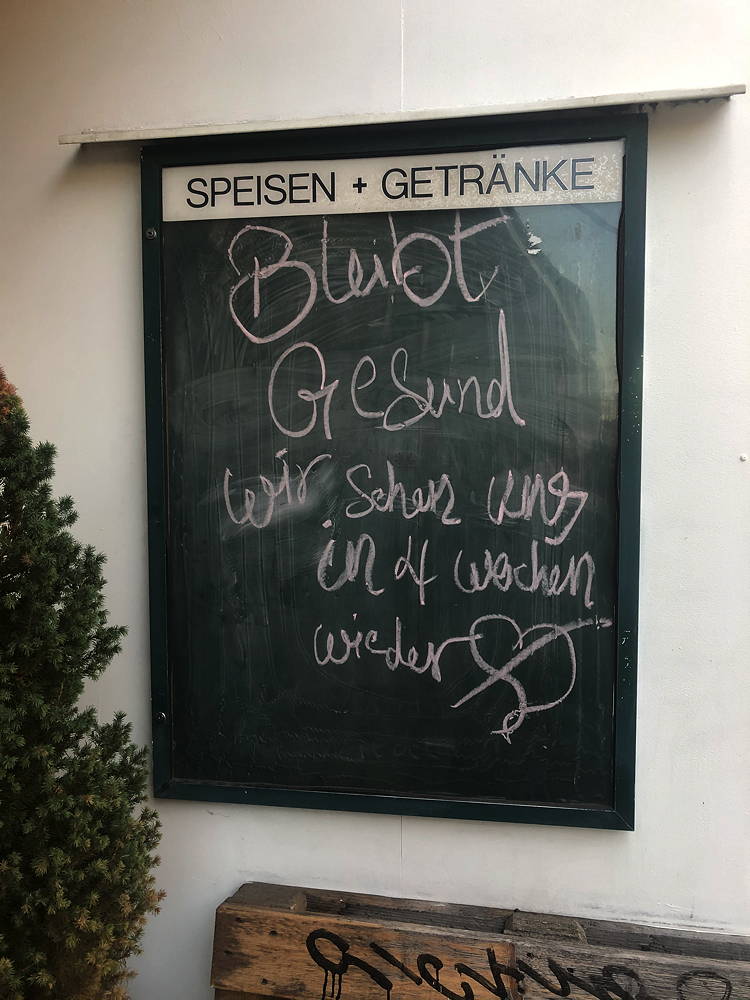 SPEISEN + GETRÄNKE
Bleibt
Gesund
wir sehen uns
in 4 wochen
wieder